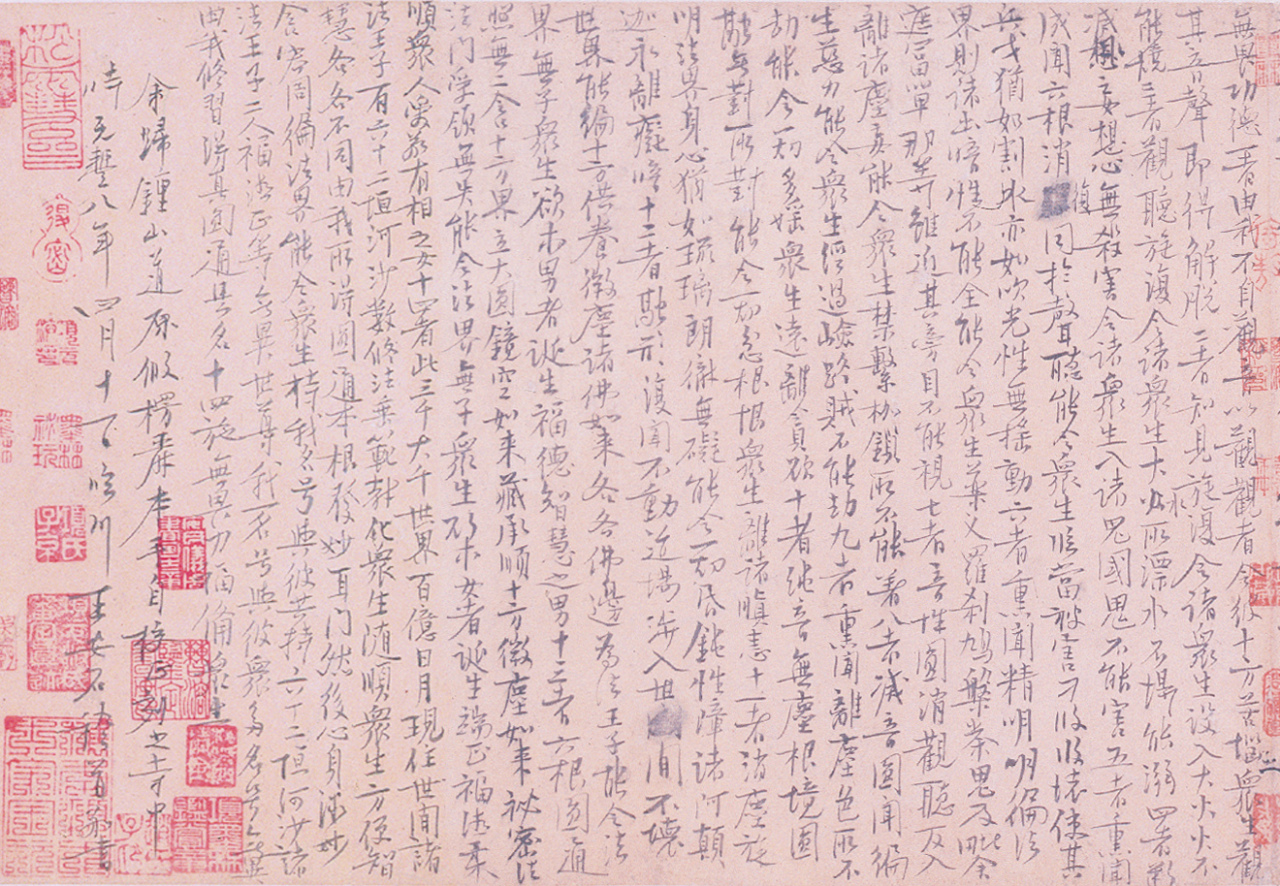 無畏功德一者由我不自觀音以觀觀者令彼十方苦惱衆生觀
其音聲即得解脫二者知見旋復令諸衆生設入大火火不
能燒三者觀聽旋復令諸衆生大水所漂水不能溺四者斷
滅妄想心無殺害令諸衆生入諸鬼國鬼不能害五者熏聞
成聞六根消復同於聲聽能令衆生臨當被害刀段段壞使其
兵戈猶如割水亦如吹光性無搖動六者熏聞精明明徧法
界則諸幽暗性不能全能令衆生藥叉羅刹鳩槃荼鬼及毗舍
遮富單那等雖近其旁目不能視七者音性圓消觀聽反入
離諸塵妄能令衆生禁繫枷鎖所不能著八者滅音圓聞徧
生慈力能令衆生經過嶮路賊不能劫九者熏聞離塵色所不
劫能令一切多婬衆生遠離貪欲十者純音無塵根境圓
融無對所對能令一切忿恨衆生離諸瞋恚十一者消塵旋
明法界身心猶如琉璃朗徹無礙能令一切昏鈍性障諸阿顛
迦永離癡暗十二者融形復聞不動道場涉入世間不壞
世界能徧十方供養微塵諸佛如来各各佛邊為法王子能令法
界無子衆生欲求男者誕生福德智慧之男十三者六根圓通
照無二含十方界立大圓鏡空如来藏承順十方微塵如来祕密法
法門受領無失能令法界無子衆生欲求女者誕生端正福德柔
順衆人愛敬有相之女十四者此三千大千世界百億日月現住世間諸
法王子有六十二恒河沙數修法垂範教化衆生隨順衆生方便智
慧各各不同由我所得圓通本根發妙耳門然後心身微妙
含容周徧法界能令衆生持我名号與彼共持六十二恒河沙諸
法王子二人福德正等無異世尊我一名号與彼衆多名号無異
由我修習得真圓通是名十四施無畏力福備衆生
余歸鍾山道原假楞嚴本手自校正刻之寺中
時元豐八年四月十一日臨川王安石稽首敬書